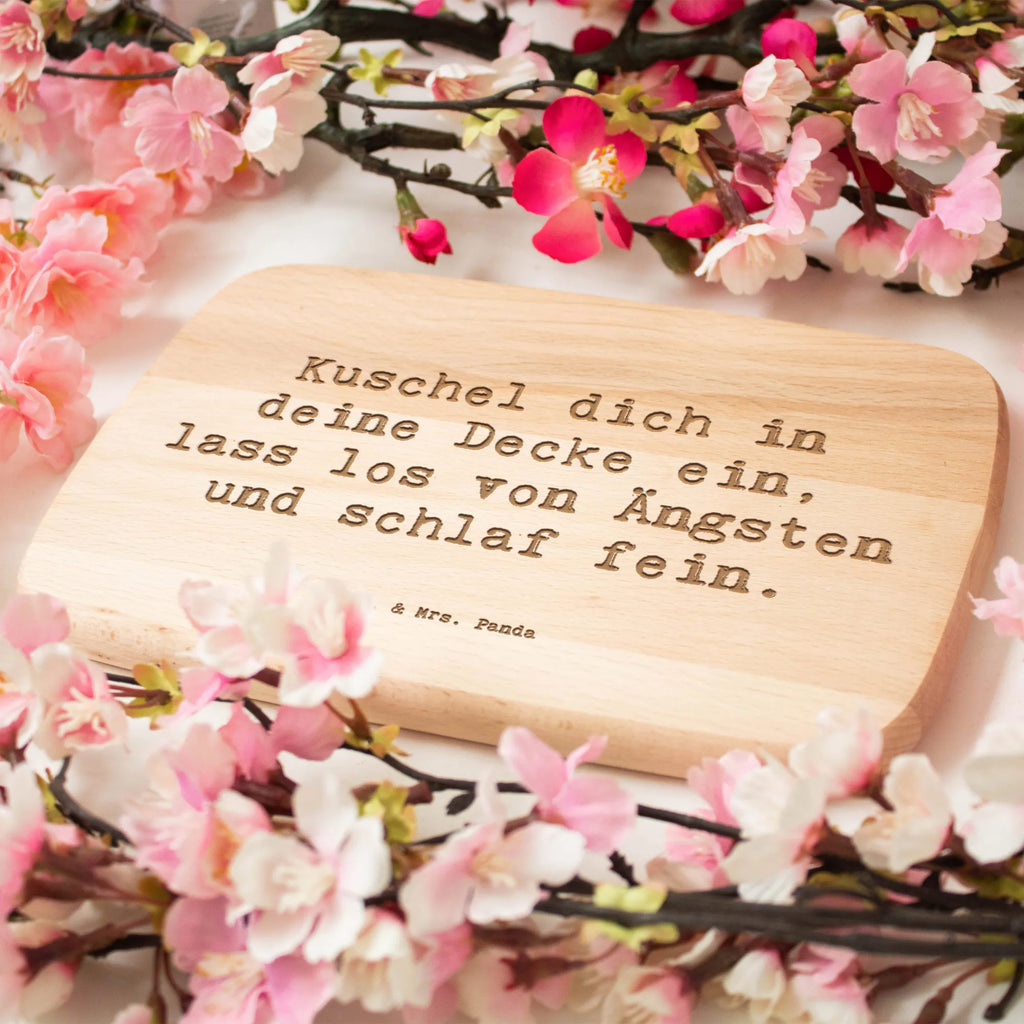 Kuschel dich in
deine Decke ein,
lass los von Ängsten
und schlaf fein.
& Mrs. Panda